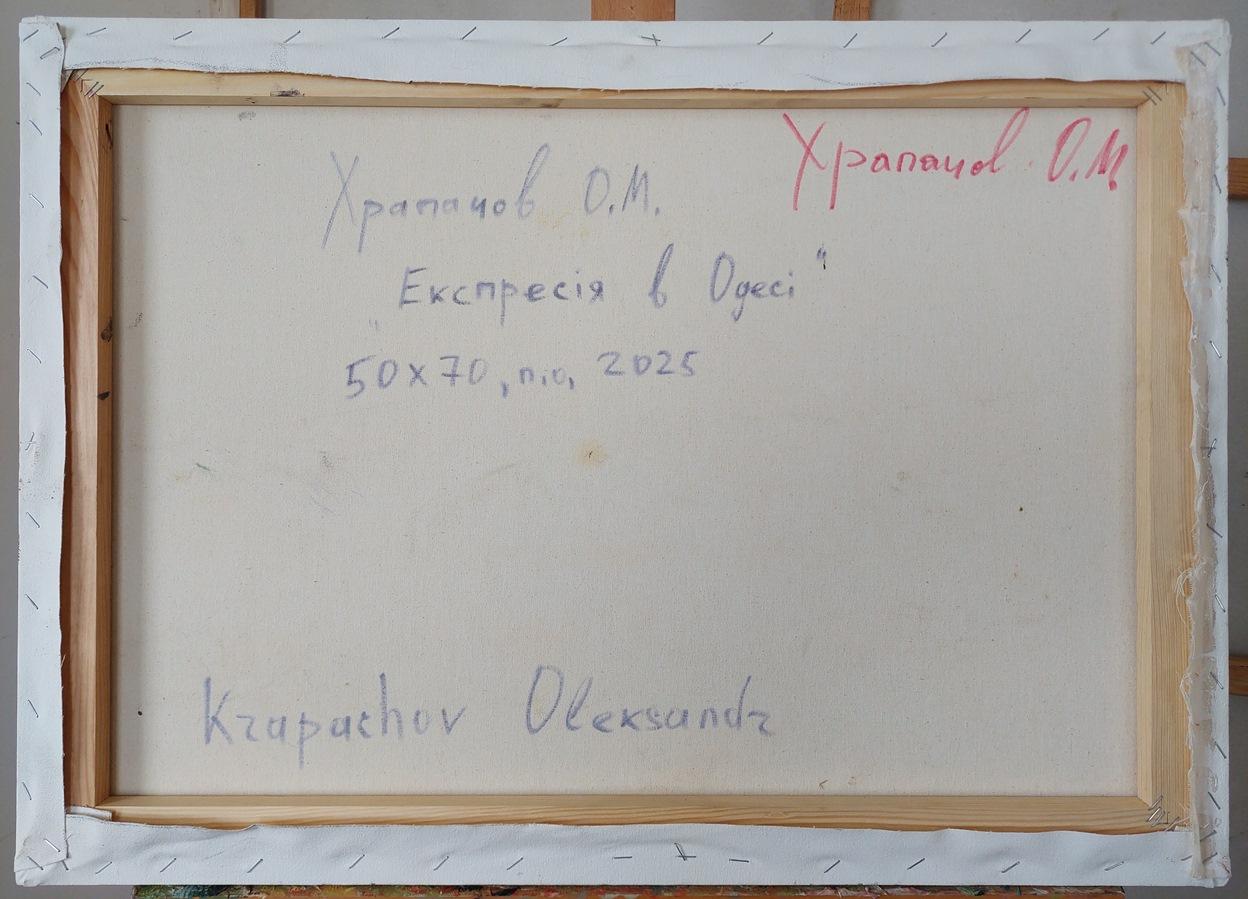 Храпачов О.М.
Храпачов О.М.
„Експресія в Одесі"
50х70, п.о, 2025
Krapachov Oleksandr